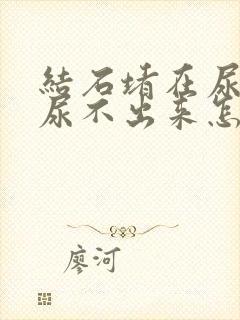 結石堵在尿
尿不出来怎
廖河